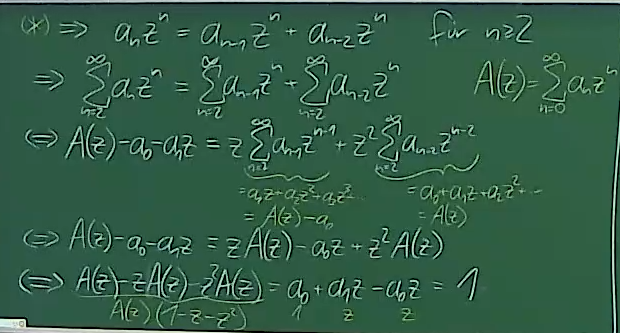 (*) ⇒ aₙzⁿ = aₙ₋₁zⁿ + aₙ₋₂zⁿ für n≥2
⇒ ∑_{n=2}^{∞} aₙzⁿ = ∑_{n=2}^{∞} aₙ₋₁zⁿ + ∑_{n=2}^{∞} aₙ₋₂zⁿ A(z) = ∑_{n=0}^{∞} aₙzⁿ
⇔ A(z) - a₀ - a₁z = z ∑_{n=2}^{∞} aₙ₋₁zⁿ⁻¹ + z² ∑_{n=2}^{∞} aₙ₋₂zⁿ⁻²
= a₁z + a₂z² + a₃z³... = a₀ + a₁z + a₂z² + ...
= A(z) - a₀ = A(z)
⇔ A(z) - a₀ - a₁z = zA(z) - a₀z + z²A(z)
⇔ A(z) - zA(z) - z²A(z) = a₀ + a₁z - a₀z = 1
A(z)(1-z-z²) 1 z z